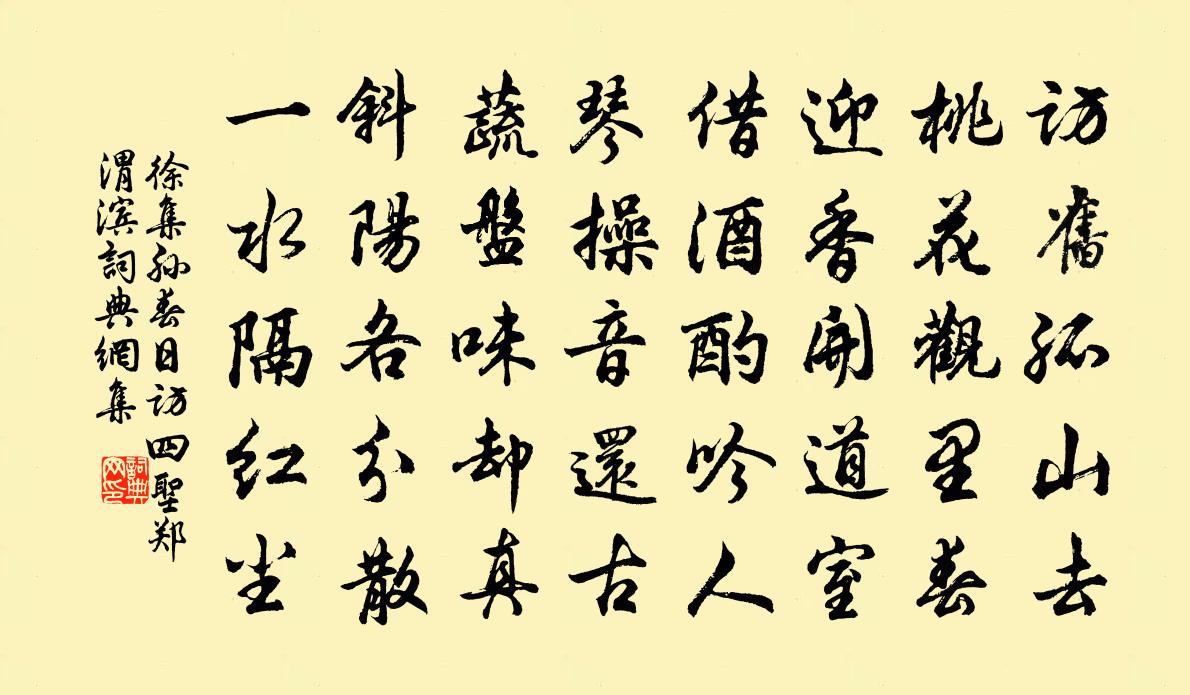 訪舊孤山去
桃花觀里春
迎香開道室
借酒酌吟人
琴操音還古
蔬盤味却真
斜陽各分散
一水隔紅尘
徐集孙春日訪四聖郑
渭滨詞典網集
詞典
网印